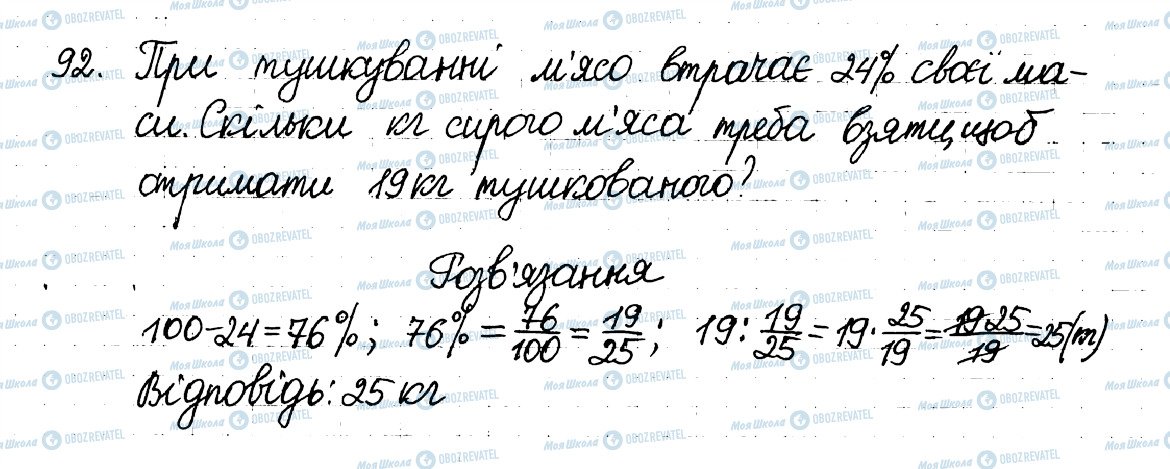 92. При тушкуванні м'ясо втрачає 24% своєї ма-
си. Скільки кг сирого м'яса треба взяти, щоб
отримати 19 кг тушкованого?
Розв'язання
100-24=76%; 76% = 76/100 = 19/25; 19 : 19/25 = 19 · 25/19 = 19·25/19 = 25(кг)
Відповідь: 25 кг